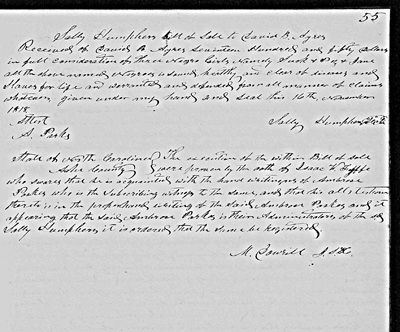 55
Sally Humphers Bill of Sale to David B. Ayres
Received of David B. Ayres Seventeen Hundred and fifty dollars
in full consideration of three Negro Girls Namely & & Jane
all the above named negroes sound healthy an clear of disease and
Slaves for life an warranted and defended from all manner of claims
whatever given under my hand and seal this 16th November
1818
Attest Sally Humphers
A. Parks
State of North Carolina The execution of the within Bill of sale
Ashe County were proven by the oath of Isaac
who swears that he is acquainted with the hand writing of Ambrose
Parks who is the Subscribing witness to the same, and that his attestation
thereto is in the proper hand writing of the said Ambrose Parks and it
appearing that the said Ambrose Parks is then Administrator of the sd
Sally Humphers it is ordered that the same be registered
M.